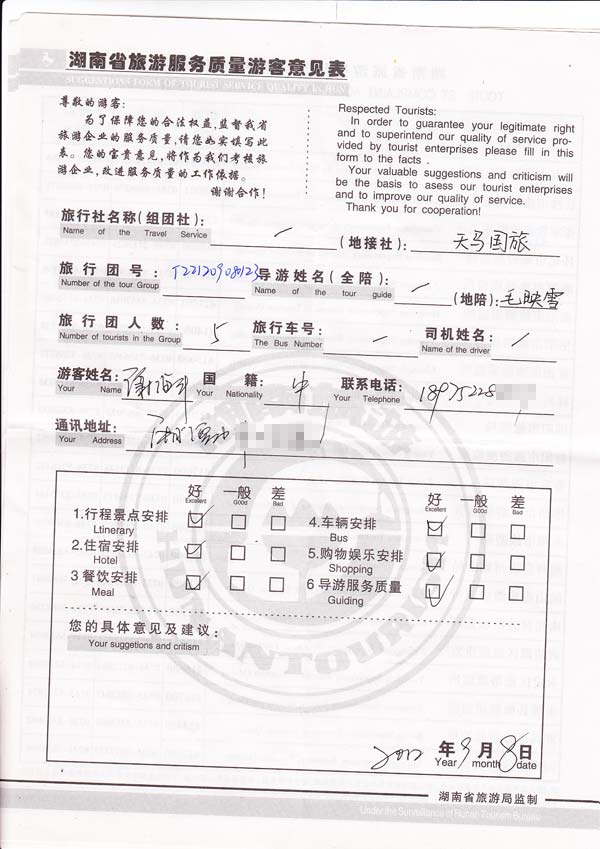 湖南省旅游服务质量游客意见表
SUGGESTIONS FORM OF TOURIST SERVICE QUALITY IN HUNAN
尊敬的游客：
为了保障您的合法权益，监督我省
旅游企业的服务质量，请您如实填写此
表。您的宝贵意见，将作为我们考核旅
游企业，改进服务质量的工作依据。
谢谢合作！
Respected Tourists:
In order to guarantee your legitimate right
and to superintend our quality of service pro-
vided by tourist enterprises please fill in this
form to the facts .
Your valuable suggestions and criticism will
be the basis to asess our tourist enterprises
and to improve our quality of service.
Thank you for cooperation!
旅行社名称(组团社)： / (地接社)： 天马国旅
Name of the Travel Service
旅行团号： T22120908123 导游姓名(全陪) / (地陪)：毛映雪
Number of the tour Group Name of the tour guide
旅行团人数： 5 旅行车号： / 司机姓名： /
Number of tourists in the Group The Bus Number Name of the driver
游客姓名： 国籍： 中 联系电话： 18975228
Your Name Your Nationality Your Telephone
通讯地址：
Your Address
好 一般 差 好 一般 差
Excellent Good Bad Excellent Good Bad
1.行程景点安排 ☑ □ □ 4.车辆安排 ☑ □ □
Ltinerary Bus
2.住宿安排 ☑ □ □ 5.购物娱乐安排 ☑ □ □
Hotel Shopping
3 餐饮安排 ☑ □ □ 6 导游服务质量 ☑ □ □
Meal Guiding
您的具体意见及建议：
Your suggetions and critism
2012 年 9 月 8 日
Year month date
湖南省旅游局监制
Under the Surveillance of Hunan Tourism Bureau